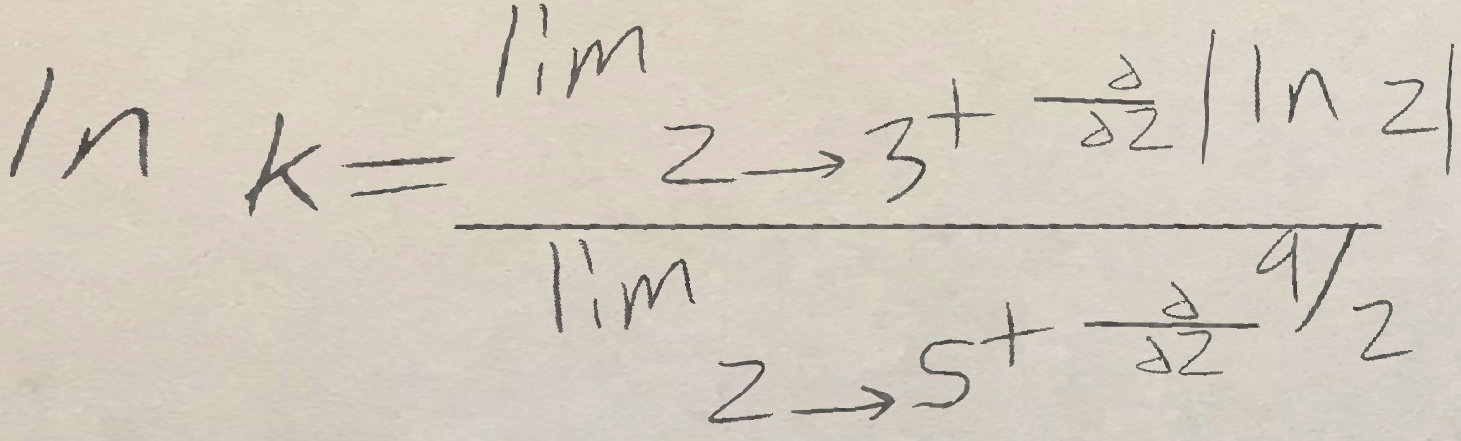 ln k = \frac{\lim_{z \to 3^+} \frac{\partial}{\partial z} |\ln z|}{\lim_{z \to 5^+} \frac{\partial}{\partial z} 9/z}